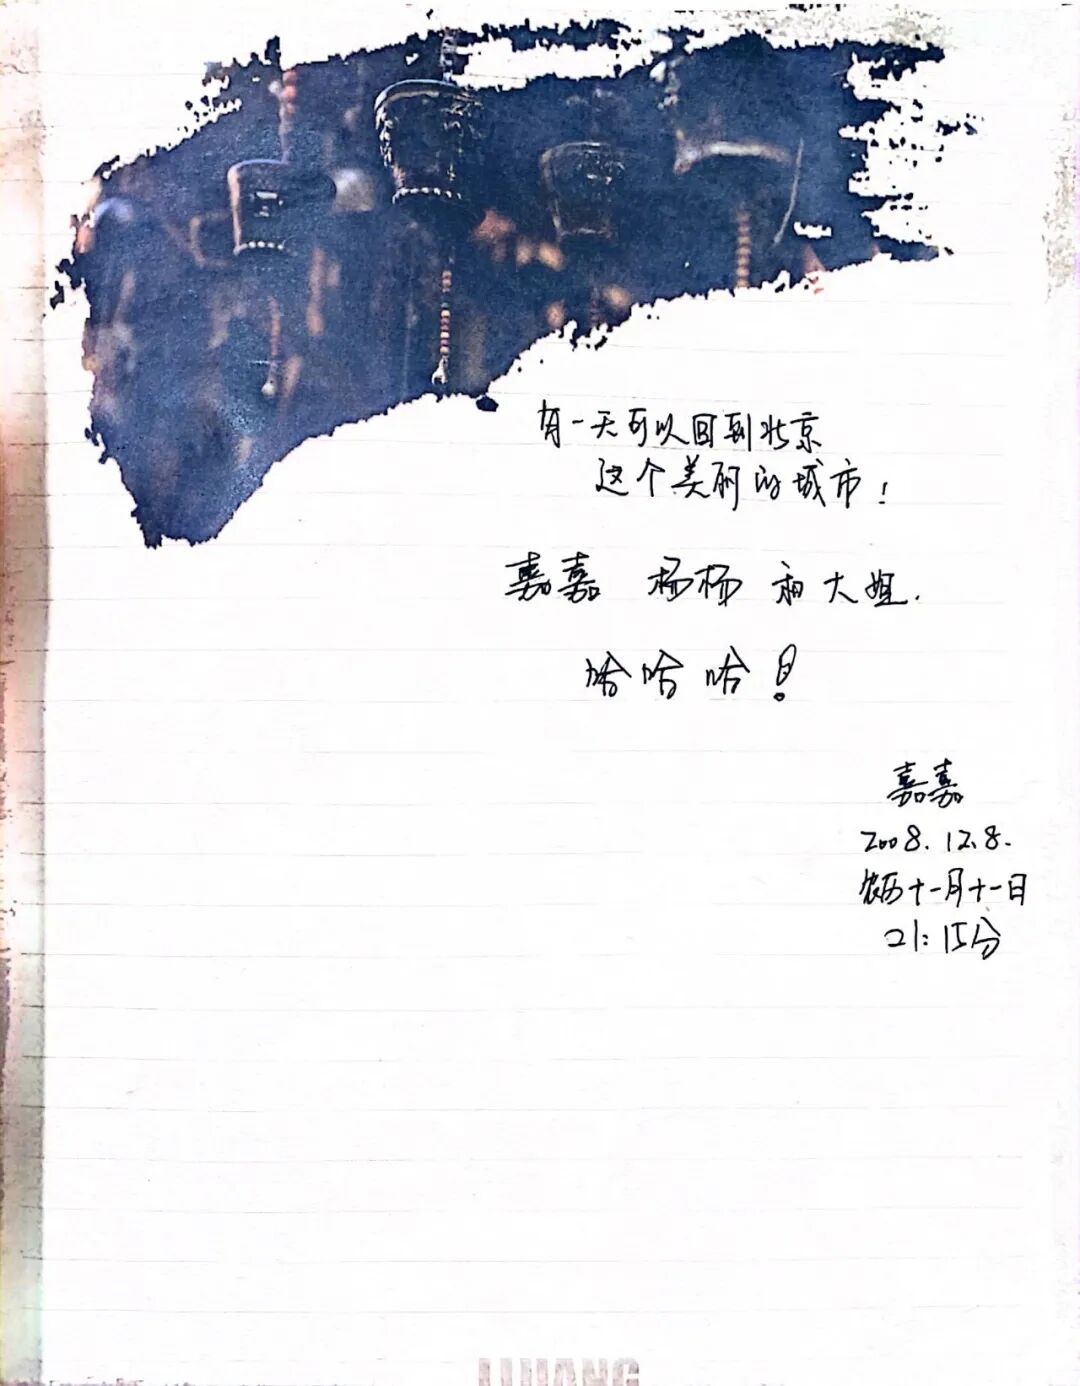 有一天可以回到北京
这个美丽的城市！
嘉嘉 杨杨 和大姐.
哈哈哈！
嘉嘉
2008.12.8.
农历十一月十一日
21:15分
LIJIANG